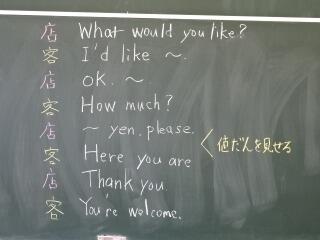 店 What would you like?
客 I'd like ～.
店 OK. ～
客 How much?
店 ～ yen, please.
客 Here you are
値だんを見せる
店 Thank you.
客 You're welcome.